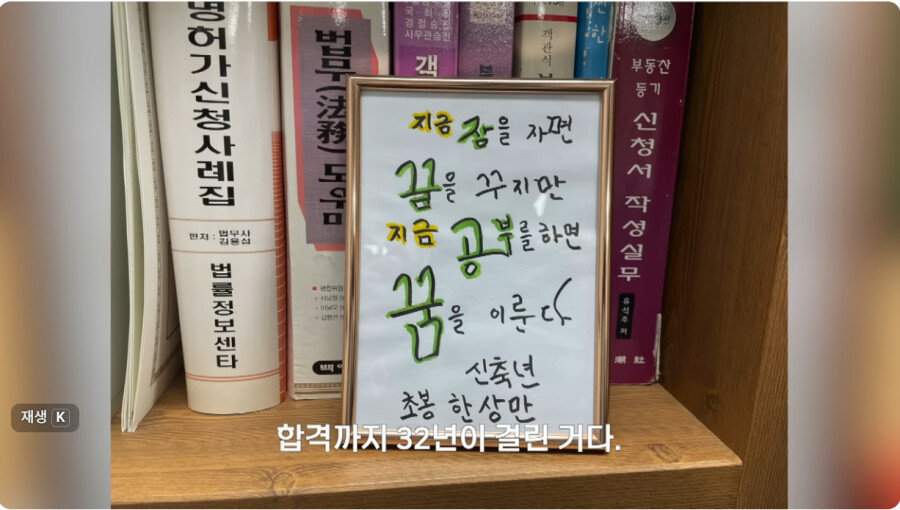 명허가신청사례집
편저 : 법무사
김용섭
법률정보센타
법무(法務)도우미
백
국회
경정승진
사무관승진
객
객관식
부동산
등기
신청서 작성실무
유석주 저
潮社
지금 잠을 자면
꿈을 꾸지만
지금 공부를 하면
꿈을 이룬다
신축년
초봉 한상만
합격까지 32년이 걸린 거다.
재생 K